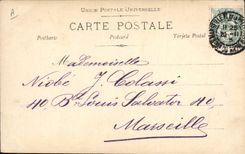 A
UNION POSTALE UNIVERSELLE
CARTE POSTALE
Postkarte Postcard Tarjeta Postal
Mademoiselle
Niobé J. Colassi
40 Bd Louis Salvator 40
Marseille